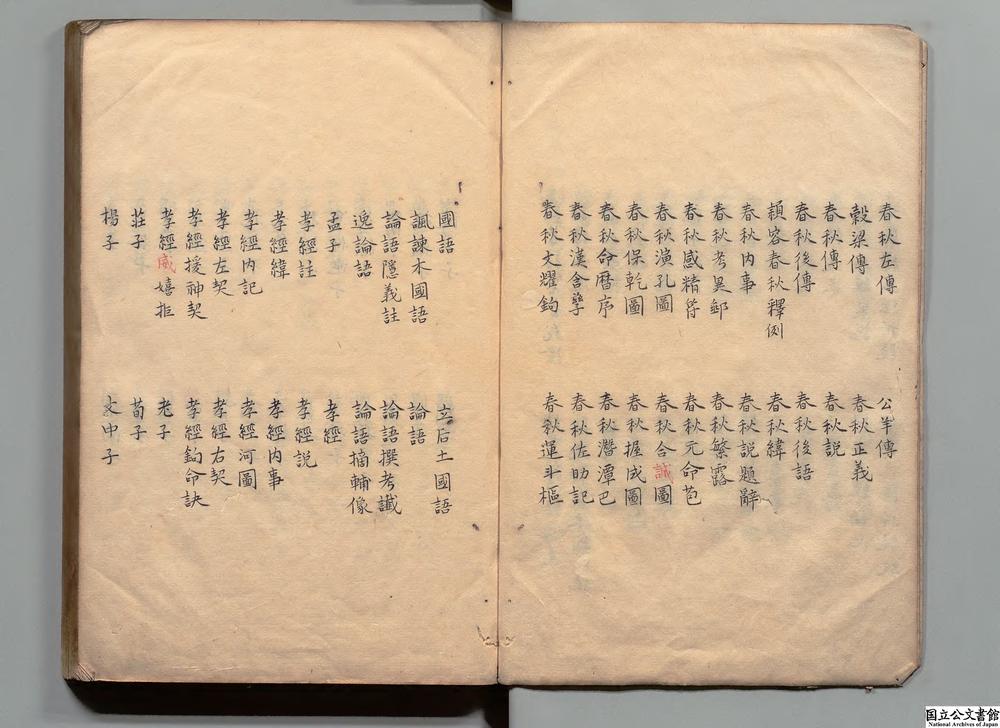 春秋左傳
公羊傳
穀梁傳
春秋正義
春秋傳
春秋説
春秋後傳
春秋後語
頴容春秋釋例
春秋緯
春秋内事
春秋説題辭
春秋考異郵
春秋繁露
春秋感精符
春秋元命苞
春秋演孔圖
春秋合誠圖
春秋保乾圖
春秋握成圖
春秋命暦序
春秋潛潭巴
春秋漢含孳
春秋佐助記
春秋文耀鉤
春秋運斗樞
國語
立后土國語
諷諫木國語
論語
論語隱義註
論語撰考讖
逸論語
論語摘輔像
孟子
孝經
孝經註
孝經説
孝經緯
孝經内事
孝經内記
孝經河圖
孝經左契
孝經右契
孝經援神契
孝經鉤命訣
孝經威嬉拒
老子
莊子
荀子
楊子
文中子
国立公文書館
National Archives of Japan